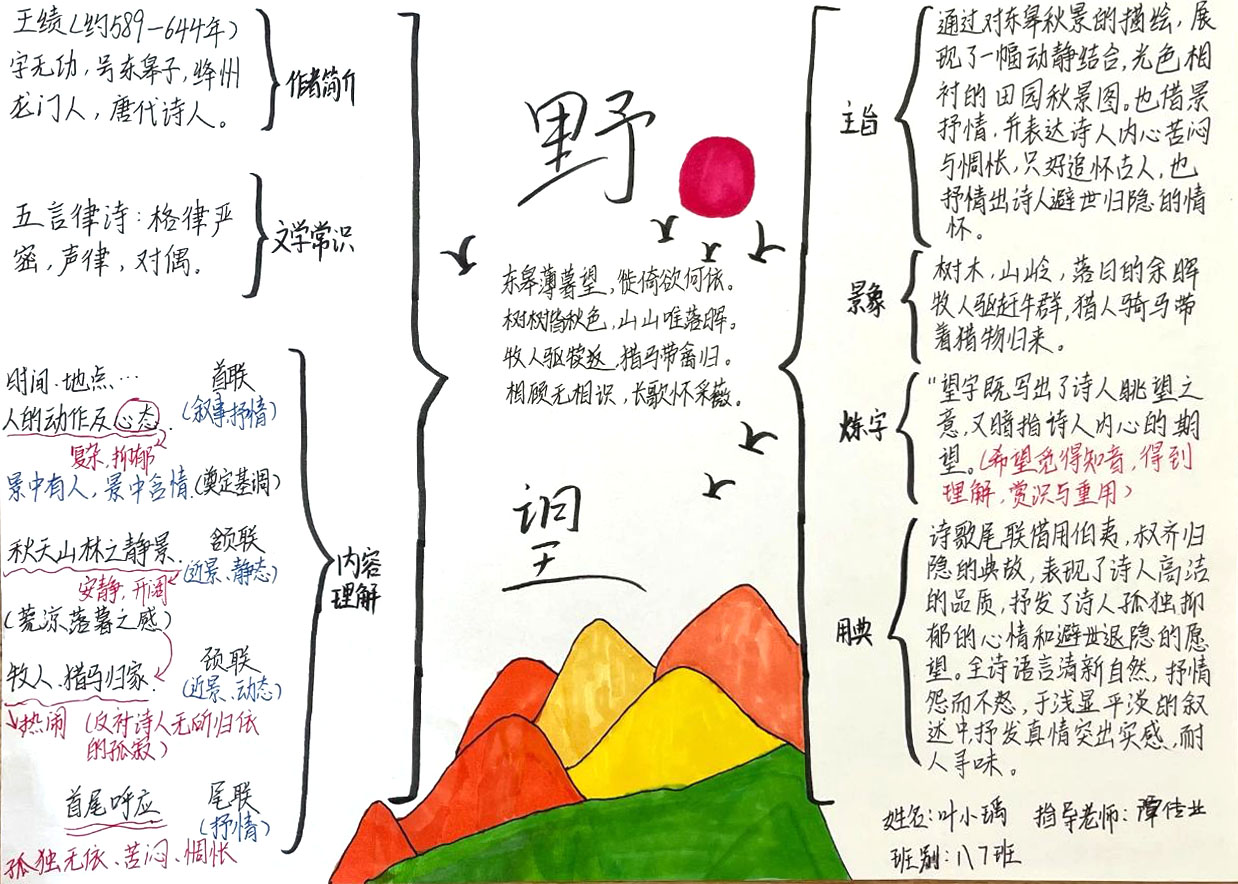 王绩(约589—644年)
字无功,号东皋子,绛州
龙门人,唐代诗人。
作者简介
五言律诗:格律严
密,声律,对偶。
文学常识
时间、地点…
人的动作及心态.
首联
(叙事抒情)
复杂,抑郁
景中有人,景中含情.(奠定基调)
秋天山林之静景.
颔联
(近景、静态)
安静,开阔
(荒凉落暮之感)
牧人、猎马归家.
颈联
(近景、动态)
热闹
(反衬诗人无所归依
的孤寂)
首尾呼应
尾联
(抒情)
孤独无依、苦闷、惆怅
内容
理解
野
东皋薄暮望,徙倚欲何依。
树树皆秋色,山山唯落晖。
牧人驱犊返,猎马带禽归。
相顾无相识,长歌怀采薇。
望
主旨
通过对东皋秋景的描绘,展
现了一幅动静结合,光色相
衬的田园秋景图。也借景
抒情,并表达诗人内心苦闷
与惆怅,只好追怀古人,也
抒情出诗人避世归隐的情
怀。
景象
树木,山岭,落日的余晖
牧人驱赶牛群,猎人骑马带
着猎物归来。
炼字
"望字既写出了诗人眺望之
意,又暗指诗人内心的期
望。(希望觅得知音,得到
理解,赏识与重用)
用典
诗歌尾联借用伯夷,叔齐归
隐的典故,表现了诗人高洁
的品质,抒发了诗人孤独抑
郁的心情和避世退隐的愿
望。全诗语言清新自然,抒情
怨而不怒,于浅显平淡的叙
述中,抒发真情突出实感,耐
人寻味。
姓名:叶小瑀 指导老师:谭佳业
班别:八7班